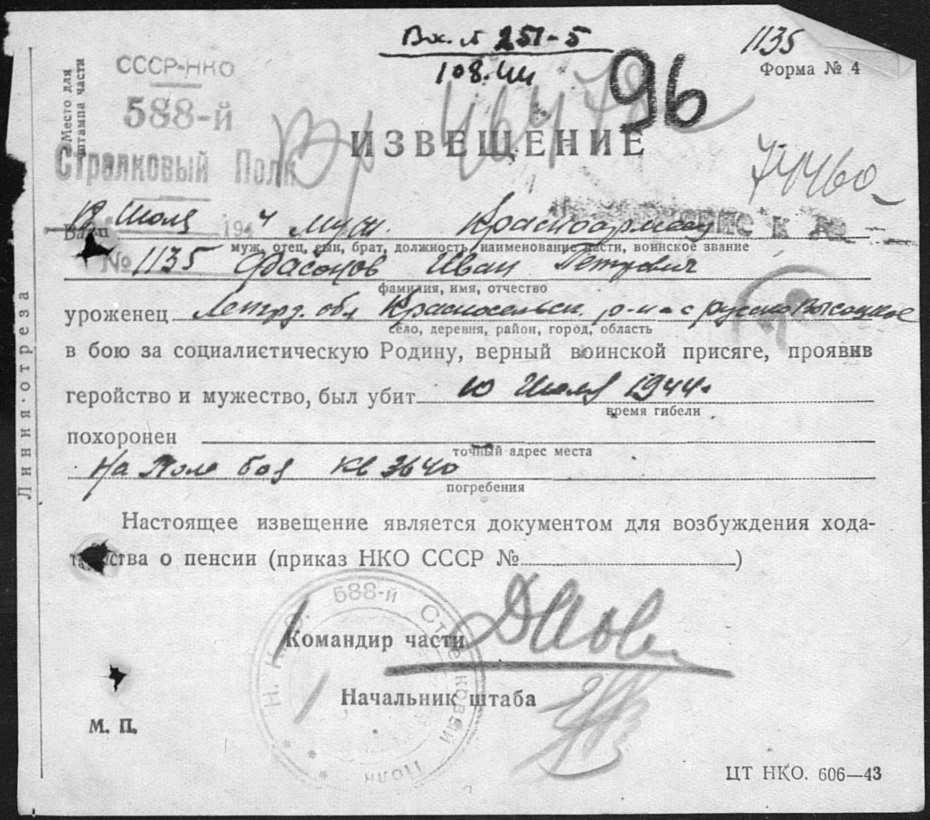 Вх. № 251-5
1135
108.44
96
Форма № 4
Место для штампа части
СССР-НКО
588-й
Стрелковый Полк
ИЗВЕЩЕНИЕ
74460
12 Июля 1944 муж. Красноармеец
муж, отец, сын, брат, должность, наименование части, воинское звание
№ 1135 Фасонов Иван Петрович
фамилия, имя, отчество
уроженец Ленгр. обл Красносельск. р-на с русско Высоцкое
село, деревня, район, город, область
в бою за социалистическую Родину, верный воинской присяге, проявив
геройство и мужество, был убит 10 Июля 1944г.
время гибели
похоронен
точный адрес места
На Поле боя кв 3640
погребения
Линия отреза
Настоящее извещение является документом для возбуждения хода-
тайства о пенсии (приказ НКО СССР № )
Н. К. О. 588-й Стрелковый Полк
Командир части
Начальник штаба
М. П.
ЦТ НКО. 606—43